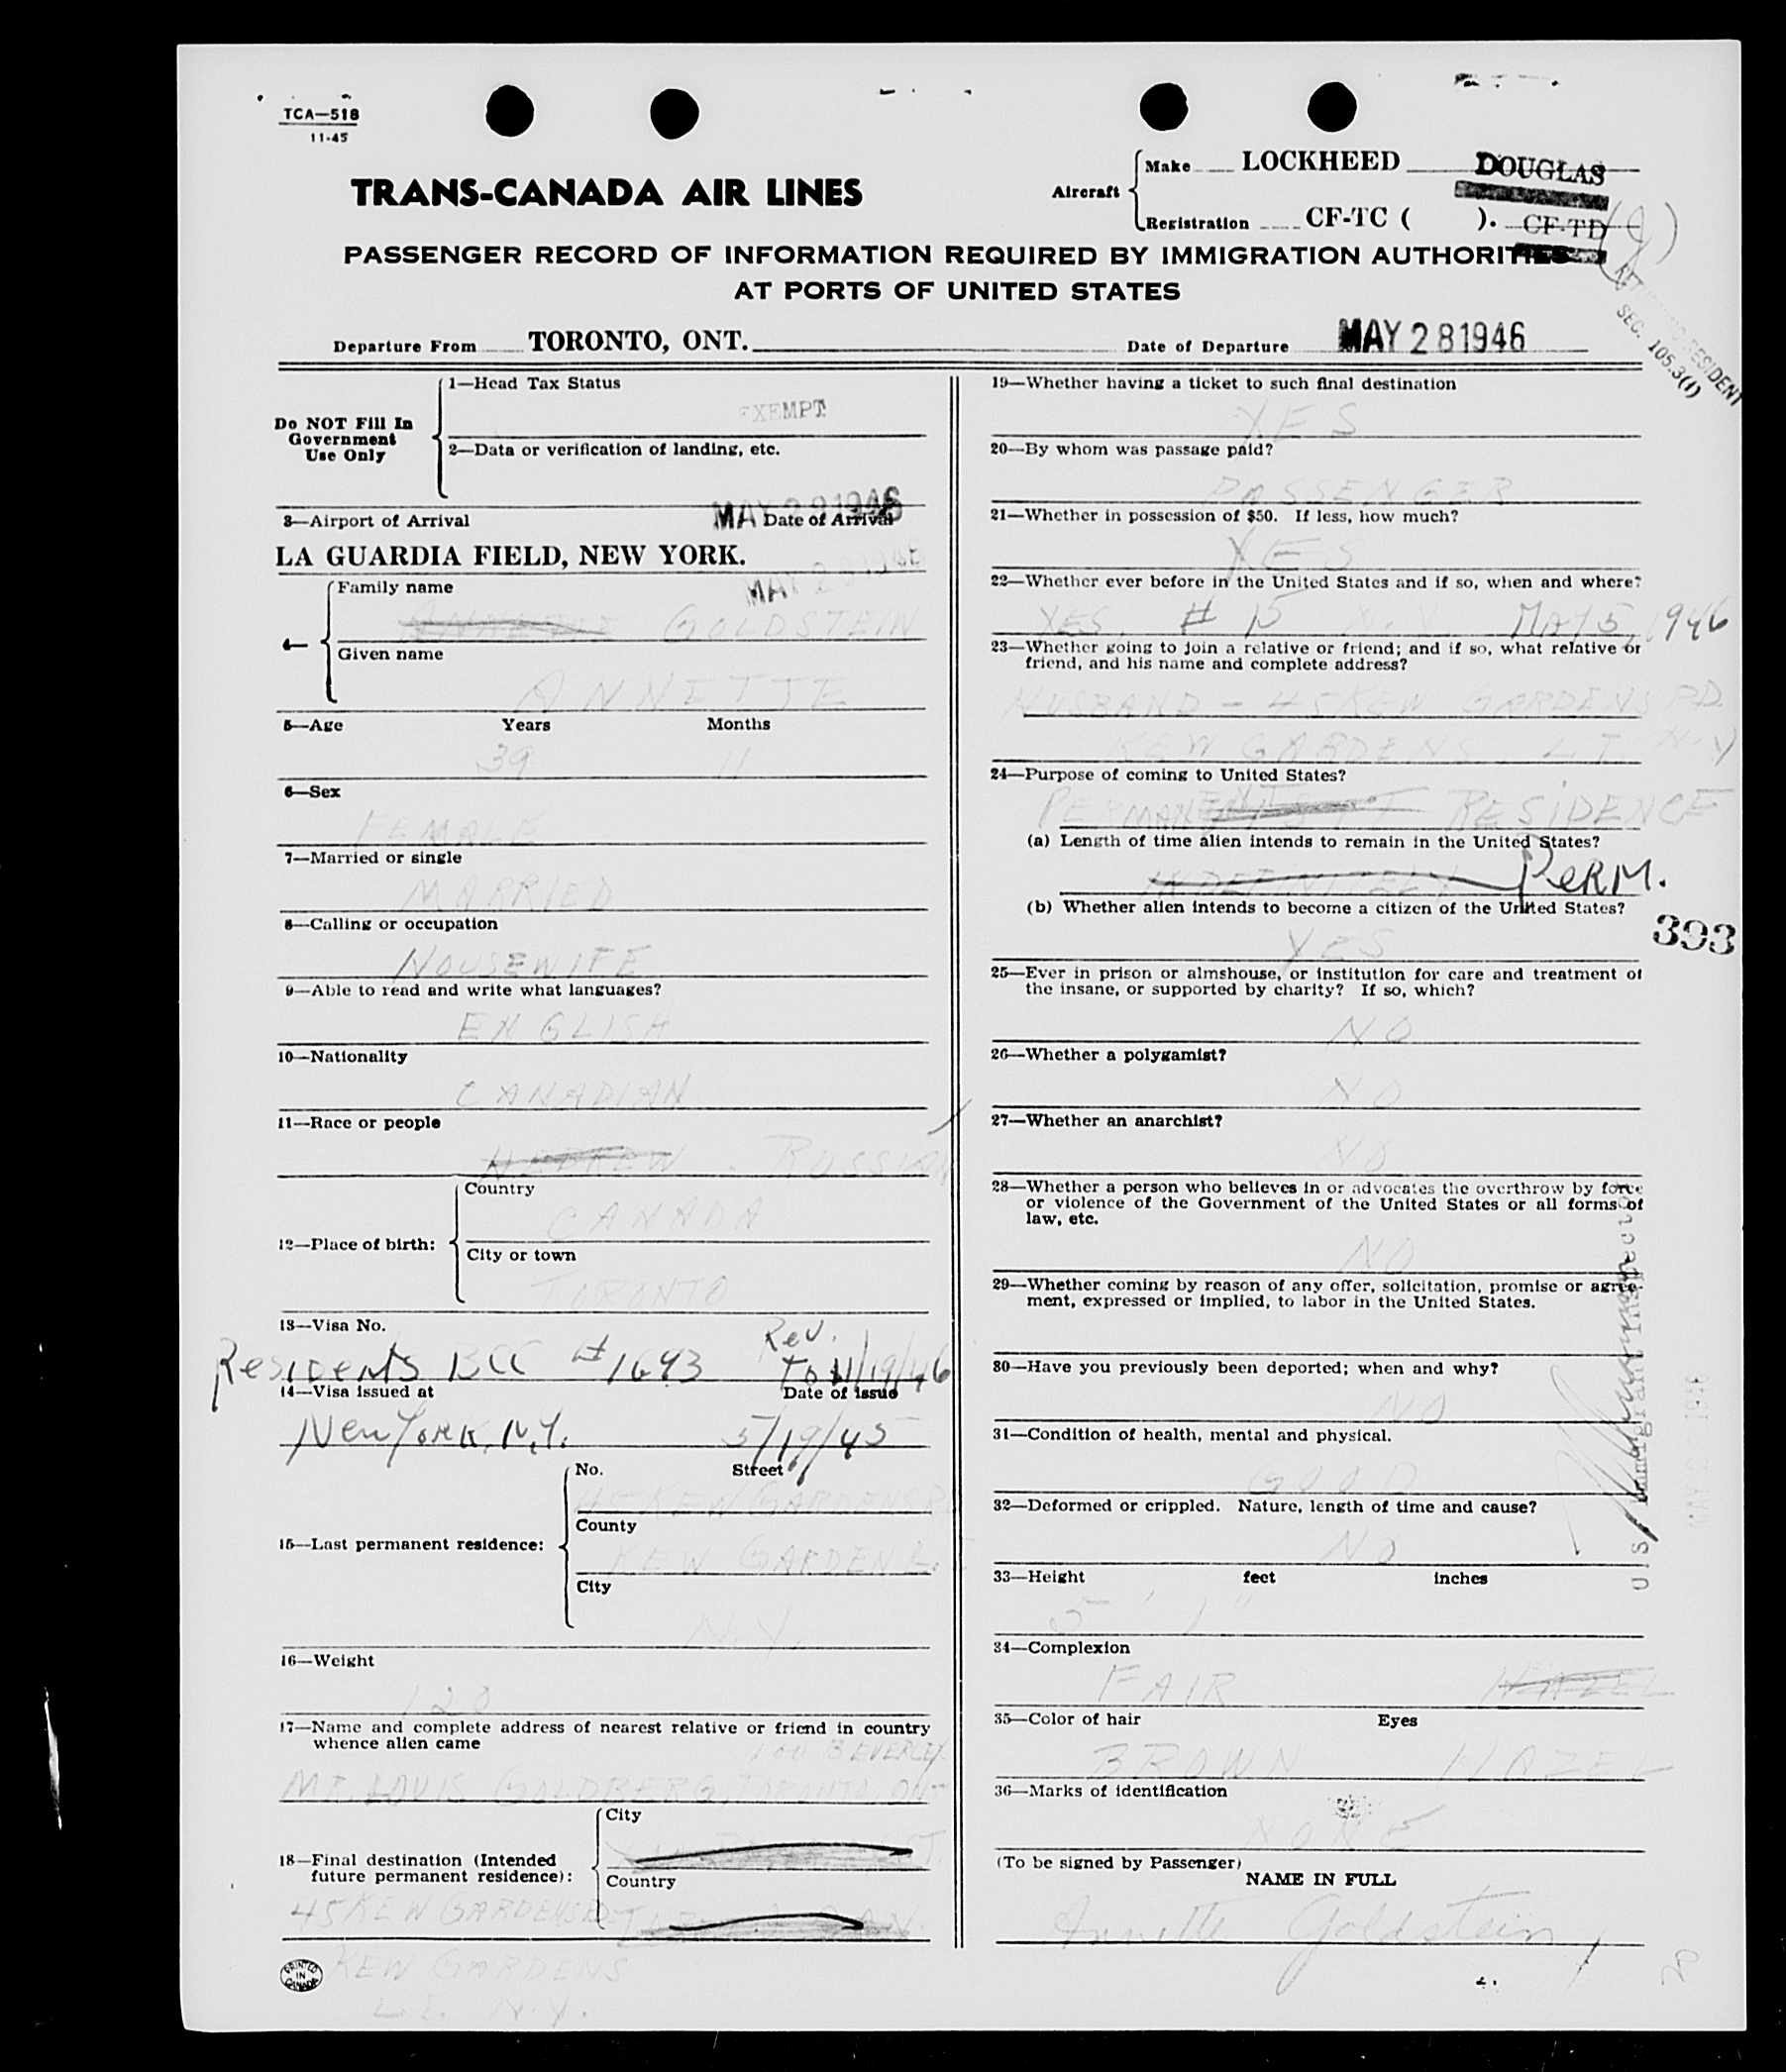 TCA—518
11-45
TRANS-CANADA AIR LINES
Aircraft
Make LOCKHEED DOUGLAS
Registration CF-TC ( ). CF-TD
PASSENGER RECORD OF INFORMATION REQUIRED BY IMMIGRATION AUTHORITIES
AT PORTS OF UNITED STATES
SEC. 105.3(1)
RESIDENT
Departure From TORONTO, ONT.
Date of Departure MAY 28 1946
Do NOT Fill In
Government
Use Only
1—Head Tax Status
EXEMPT
2—Data or verification of landing, etc.
MAY 29 1946
3—Airport of Arrival Date of Arrival
LA GUARDIA FIELD, NEW YORK.
MAY 2 1946
4—
Family name
GOLDSTEIN
Given name
ANNETTE
5—Age Years Months
39 11
6—Sex
FEMALE
7—Married or single
MARRIED
8—Calling or occupation
HOUSEWIFE
9—Able to read and write what languages?
ENGLISH
10—Nationality
CANADIAN
11—Race or people
HEBREW RUSSIAN
12—Place of birth:
Country
CANADA
City or town
TORONTO
13—Visa No.
Residents BCC #1643 Rev. To 11/19/46
14—Visa issued at Date of issue
New York, N.Y. 5/19/45
15—Last permanent residence:
No. Street
45 KEW GARDENS RD
County
KEW GARDEN L.I.
City
N.Y.
16—Weight
120
17—Name and complete address of nearest relative or friend in country
whence alien came
160 BEVERLEY
MR. LOUIS GOLDBERG, TORONTO, ONT
18—Final destination (Intended
future permanent residence):
City
Country
45 KEW GARDENS RD
KEW GARDENS
L.I. N.Y.
PRINTED
IN
CANADA
19—Whether having a ticket to such final destination
YES
20—By whom was passage paid?
PASSENGER
21—Whether in possession of $50. If less, how much?
YES
22—Whether ever before in the United States and if so, when and where?
YES. # 15 N.Y. MAY 5, 1946
23—Whether going to join a relative or friend; and if so, what relative or
friend, and his name and complete address?
HUSBAND - 45 KEW GARDENS RD.
KEW GARDENS L.I. N.Y
24—Purpose of coming to United States?
PERMANENT RESIDENCE
(a) Length of time alien intends to remain in the United States?
INDEFINITELY PERM.
(b) Whether alien intends to become a citizen of the United States?
YES
393
25—Ever in prison or almshouse, or institution for care and treatment of
the insane, or supported by charity? If so, which?
NO
26—Whether a polygamist?
NO
27—Whether an anarchist?
NO
28—Whether a person who believes in or advocates the overthrow by force
or violence of the Government of the United States or all forms of
law, etc.
NO
29—Whether coming by reason of any offer, solicitation, promise or agree-
ment, expressed or implied, to labor in the United States.
30—Have you previously been deported; when and why?
NO
31—Condition of health, mental and physical.
GOOD
32—Deformed or crippled. Nature, length of time and cause?
NO
33—Height feet inches
5' 1"
34—Complexion
FAIR HAZEL
35—Color of hair Eyes
BROWN HAZEL
36—Marks of identification
NONE
(To be signed by Passenger)
NAME IN FULL
Annette Goldstein
U.S. Immigrant Inspector